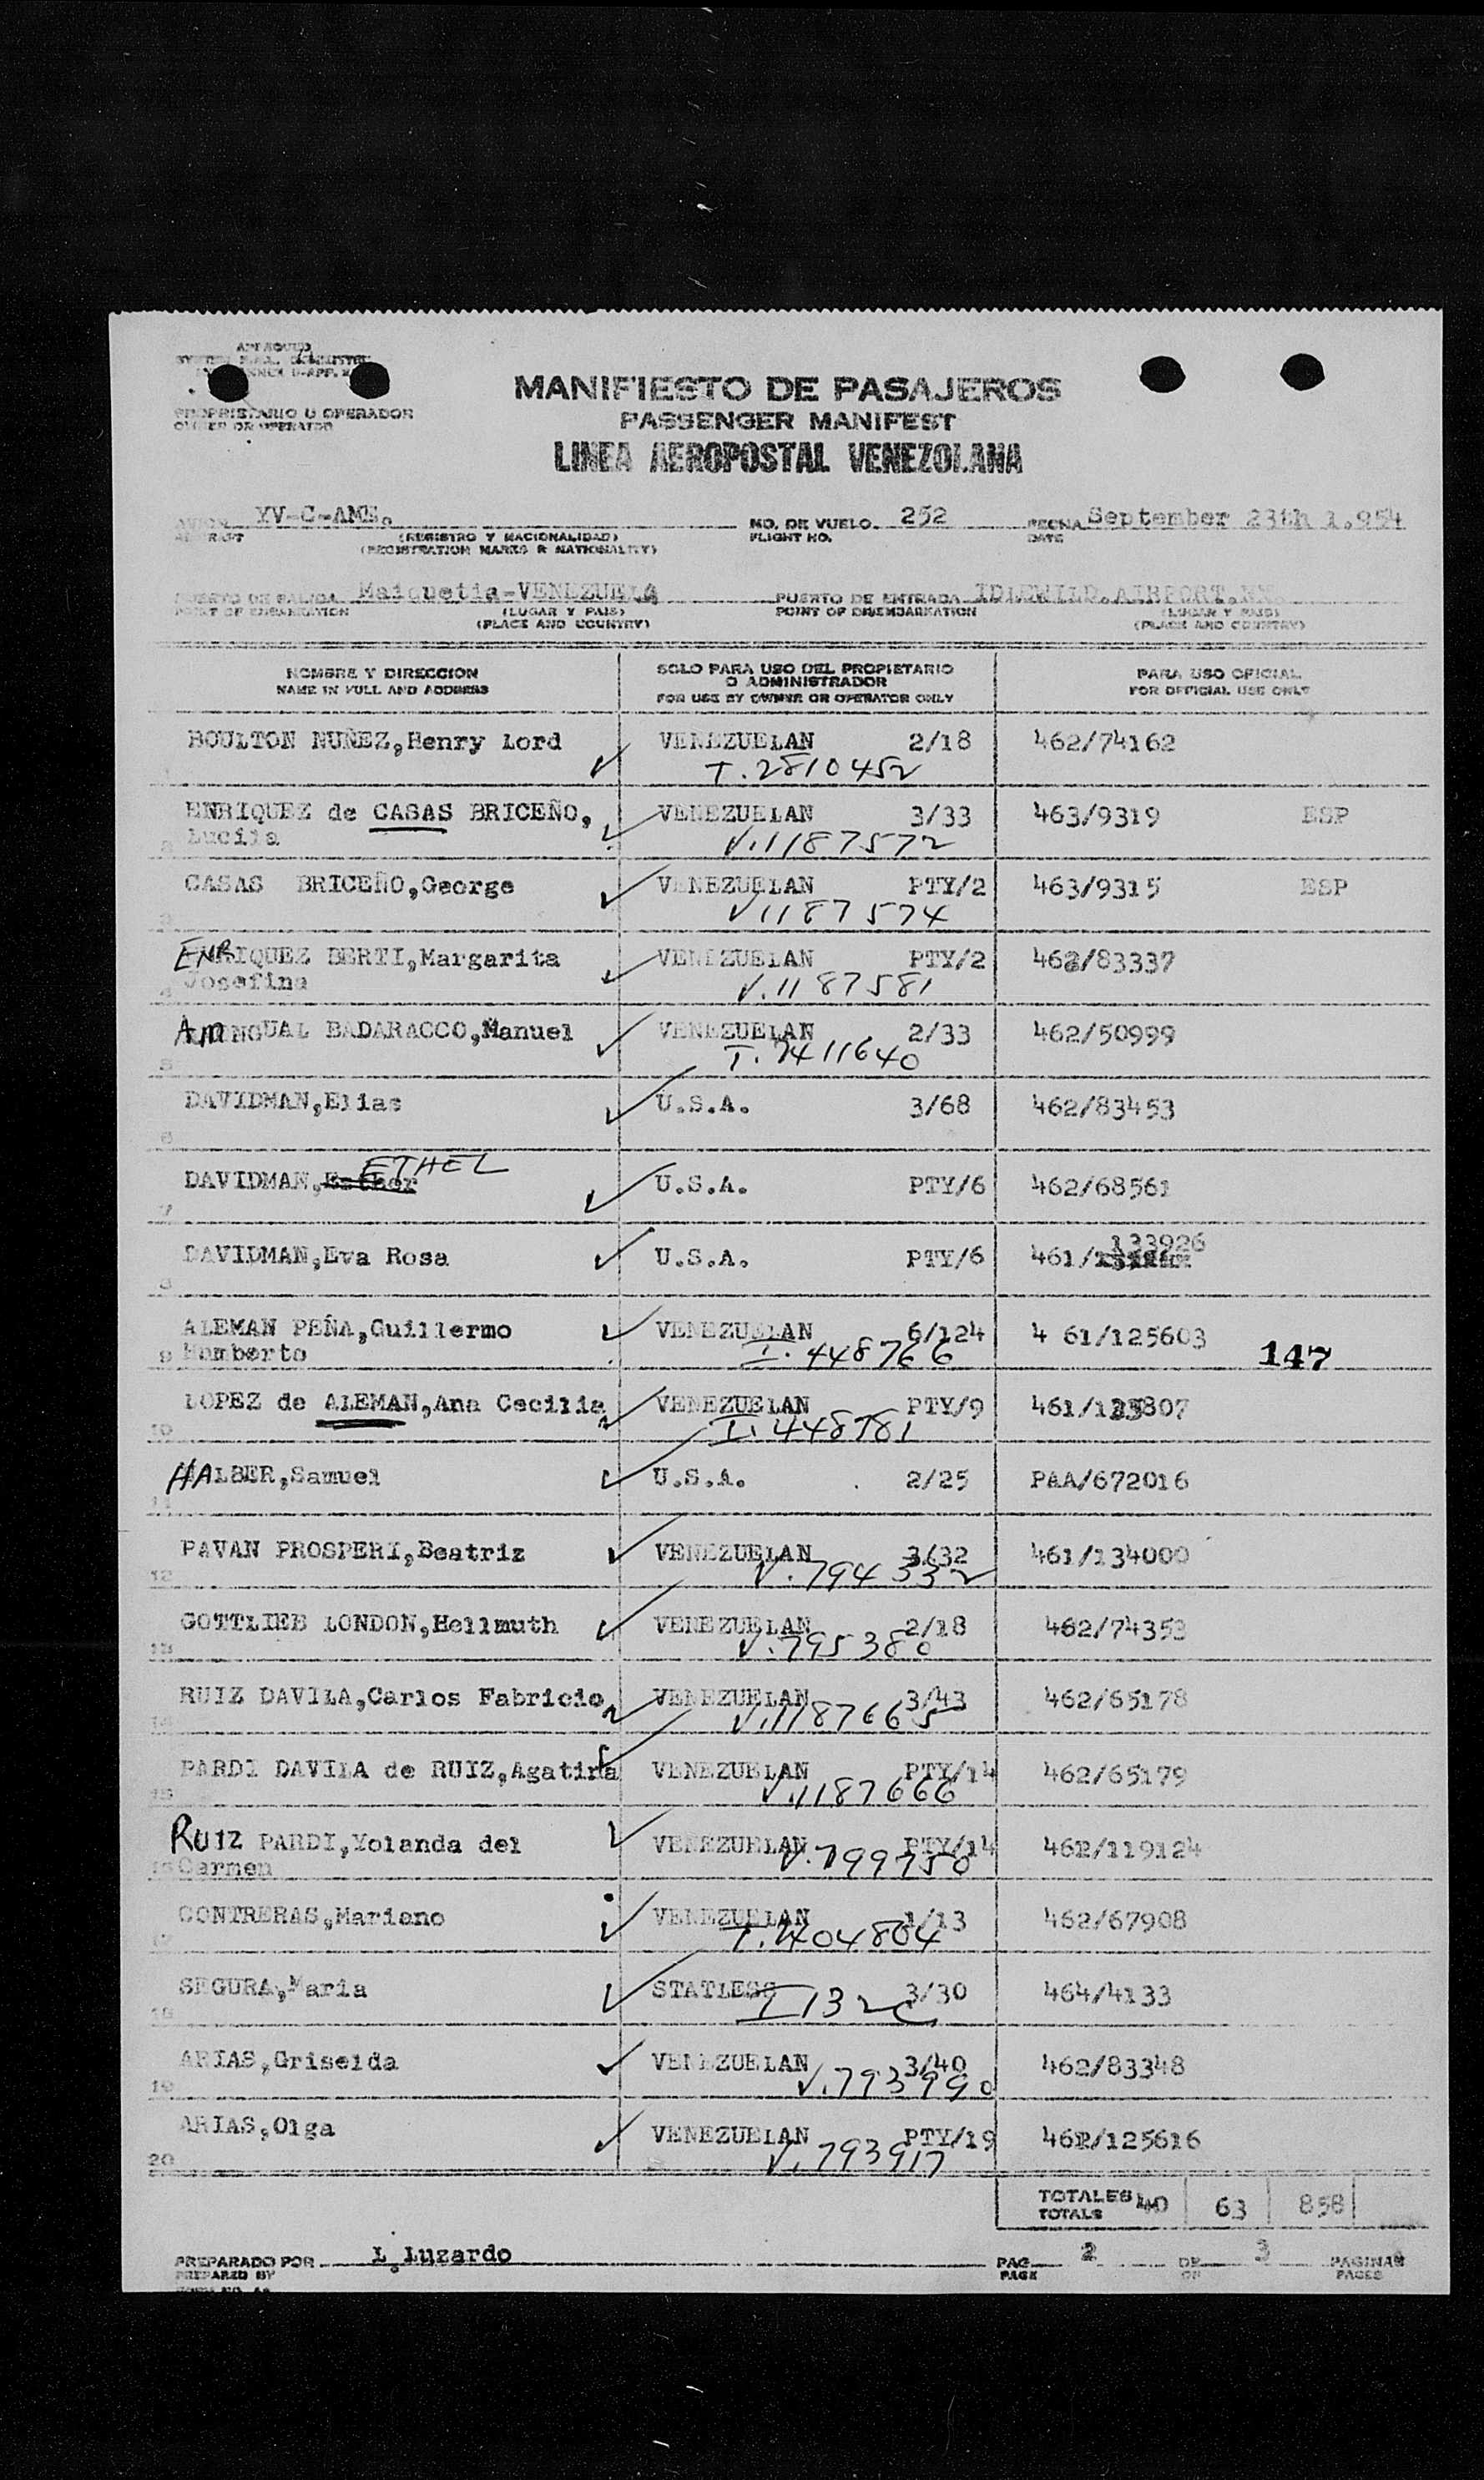 APPROVED
PROPRIETARIO U OPERADOR
OWNER OR OPERATOR
MANIFIESTO DE PASAJEROS
PASSENGER MANIFEST
LINEA AEROPOSTAL VENEZOLANA
AVION YV-C-AME. NO. DE VUELO 252 FECHA September 23th 1.954
AIRCRAFT (REGISTRO Y NACIONALIDAD) FLIGHT NO. DATE
(REGISTRATION MARKS & NATIONALITY)
PUERTO DE SALIDA Maiquetia-VENEZUELA PUERTO DE ENTRADA IDLEWILD.AIRPORT.NY
POINT OF EMBARKATION (LUGAR Y PAIS) POINT OF DISEMBARKATION (LUGAR Y PAIS)
(PLACE AND COUNTRY) (PLACE AND COUNTRY)
NOMBRE Y DIRECCION SOLO PARA USO DEL PROPIETARIO PARA USO OFICIAL
NAME IN FULL AND ADDRESS O ADMINISTRADOR FOR OFFICIAL USE ONLY
FOR USE BY OWNER OR OPERATOR ONLY
BOULTON NUÑEZ,Henry Lord VENEZUELAN 2/18 462/74162
1 T.2810452
ENRIQUEZ de CASAS BRICEÑO, VENEZUELAN 3/33 463/9319 ESP
2 Lucila V.1187572
CASAS BRICEÑO,George VENEZUELAN PTY/2 463/9315 ESP
3 V1187574
ENRIQUEZ BERTI,Margarita VENEZUELAN PTY/2 462/83337
4 Josefina V.1187581
AmENGUAL BADARACCO,Manuel VENEZUELAN 2/33 462/50999
5 I.7411640
DAVIDMAN,Elias U.S.A. 3/68 462/83453
6
ETHEL
DAVIDMAN,Esther U.S.A. PTY/6 462/68561
7
133926
DAVIDMAN,Eva Rosa U.S.A. PTY/6 461/
8
ALEMAN PEÑA,Guillermo VENEZUELAN 6/124 4 61/125603
9 Humberto I.448766 147
LOPEZ de ALEMAN,Ana Cecilia VENEZUELAN PTY/9 461/125807
10 I.448781
HALBER,Samuel U.S.A. 2/25 PAA/672016
11
PAVAN PROSPERI,Beatriz VENEZUELAN 3/32 461/134000
12 V.794332
GOTTLIEB LONDON,Hellmuth VENEZUELAN 2/18 462/74353
13 V.795380
RUIZ DAVILA,Carlos Fabricio VENEZUELAN 3/43 462/65178
14 V.1187665
PARDI DAVILA de RUIZ,Agatina VENEZUELAN PTY/14 462/65179
15 V.1187666
RUIZ PARDI,Yolanda del VENEZUELAN PTY/14 461/119124
16 Carmen V.799750
CONTRERAS,Mariano VENEZUELAN 1/13 462/67908
17 T.404804
SEGURA,Maria STATLESS 3/30 464/4133
18 I 132C
ARIAS,Griselda VENEZUELAN 3/40 462/83348
19 V.793990
ARIAS,Olga VENEZUELAN PTY/19 461/125616
20 V.793917
TOTALES 40 63 858
TOTALS
PREPARADO POR L.Luzardo PAG. 2 DE 3 PAGINAS
PREPARED BY PAGE OF PAGES